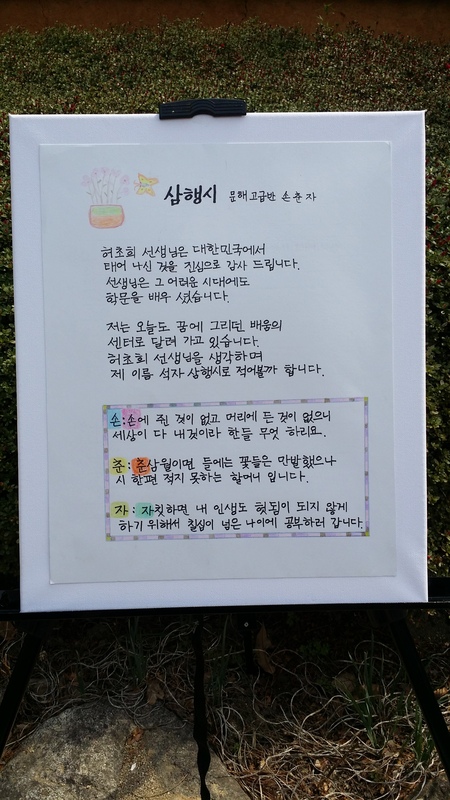 삼행시 문해고급반 손춘자
허초희 선생님은 대한민국에서
태어 나신 것을 진심으로 감사 드립니다.
선생님은 그 어려운 시대에도
학문을 배우 셨습니다.
저는 오늘도 꿈에 그리던 배움의
센터로 달려 가고 있습니다.
허초희 선생님을 생각하며
제 이름 석자 삼행시로 적어볼까 합니다.
손:손에 쥔 것이 없고 머리에 든 것이 없으니
세상이 다 내것이라 한들 무엇 하리요.
춘:춘삼월이면 들에는 꽃들은 만발했으나
시 한편 적지 못하는 할머니 입니다.
자:자칫하면 내 인생도 헛됨이 되지 않게
하기 위해서 칠십이 넘은 나이에 공부하러 갑니다.